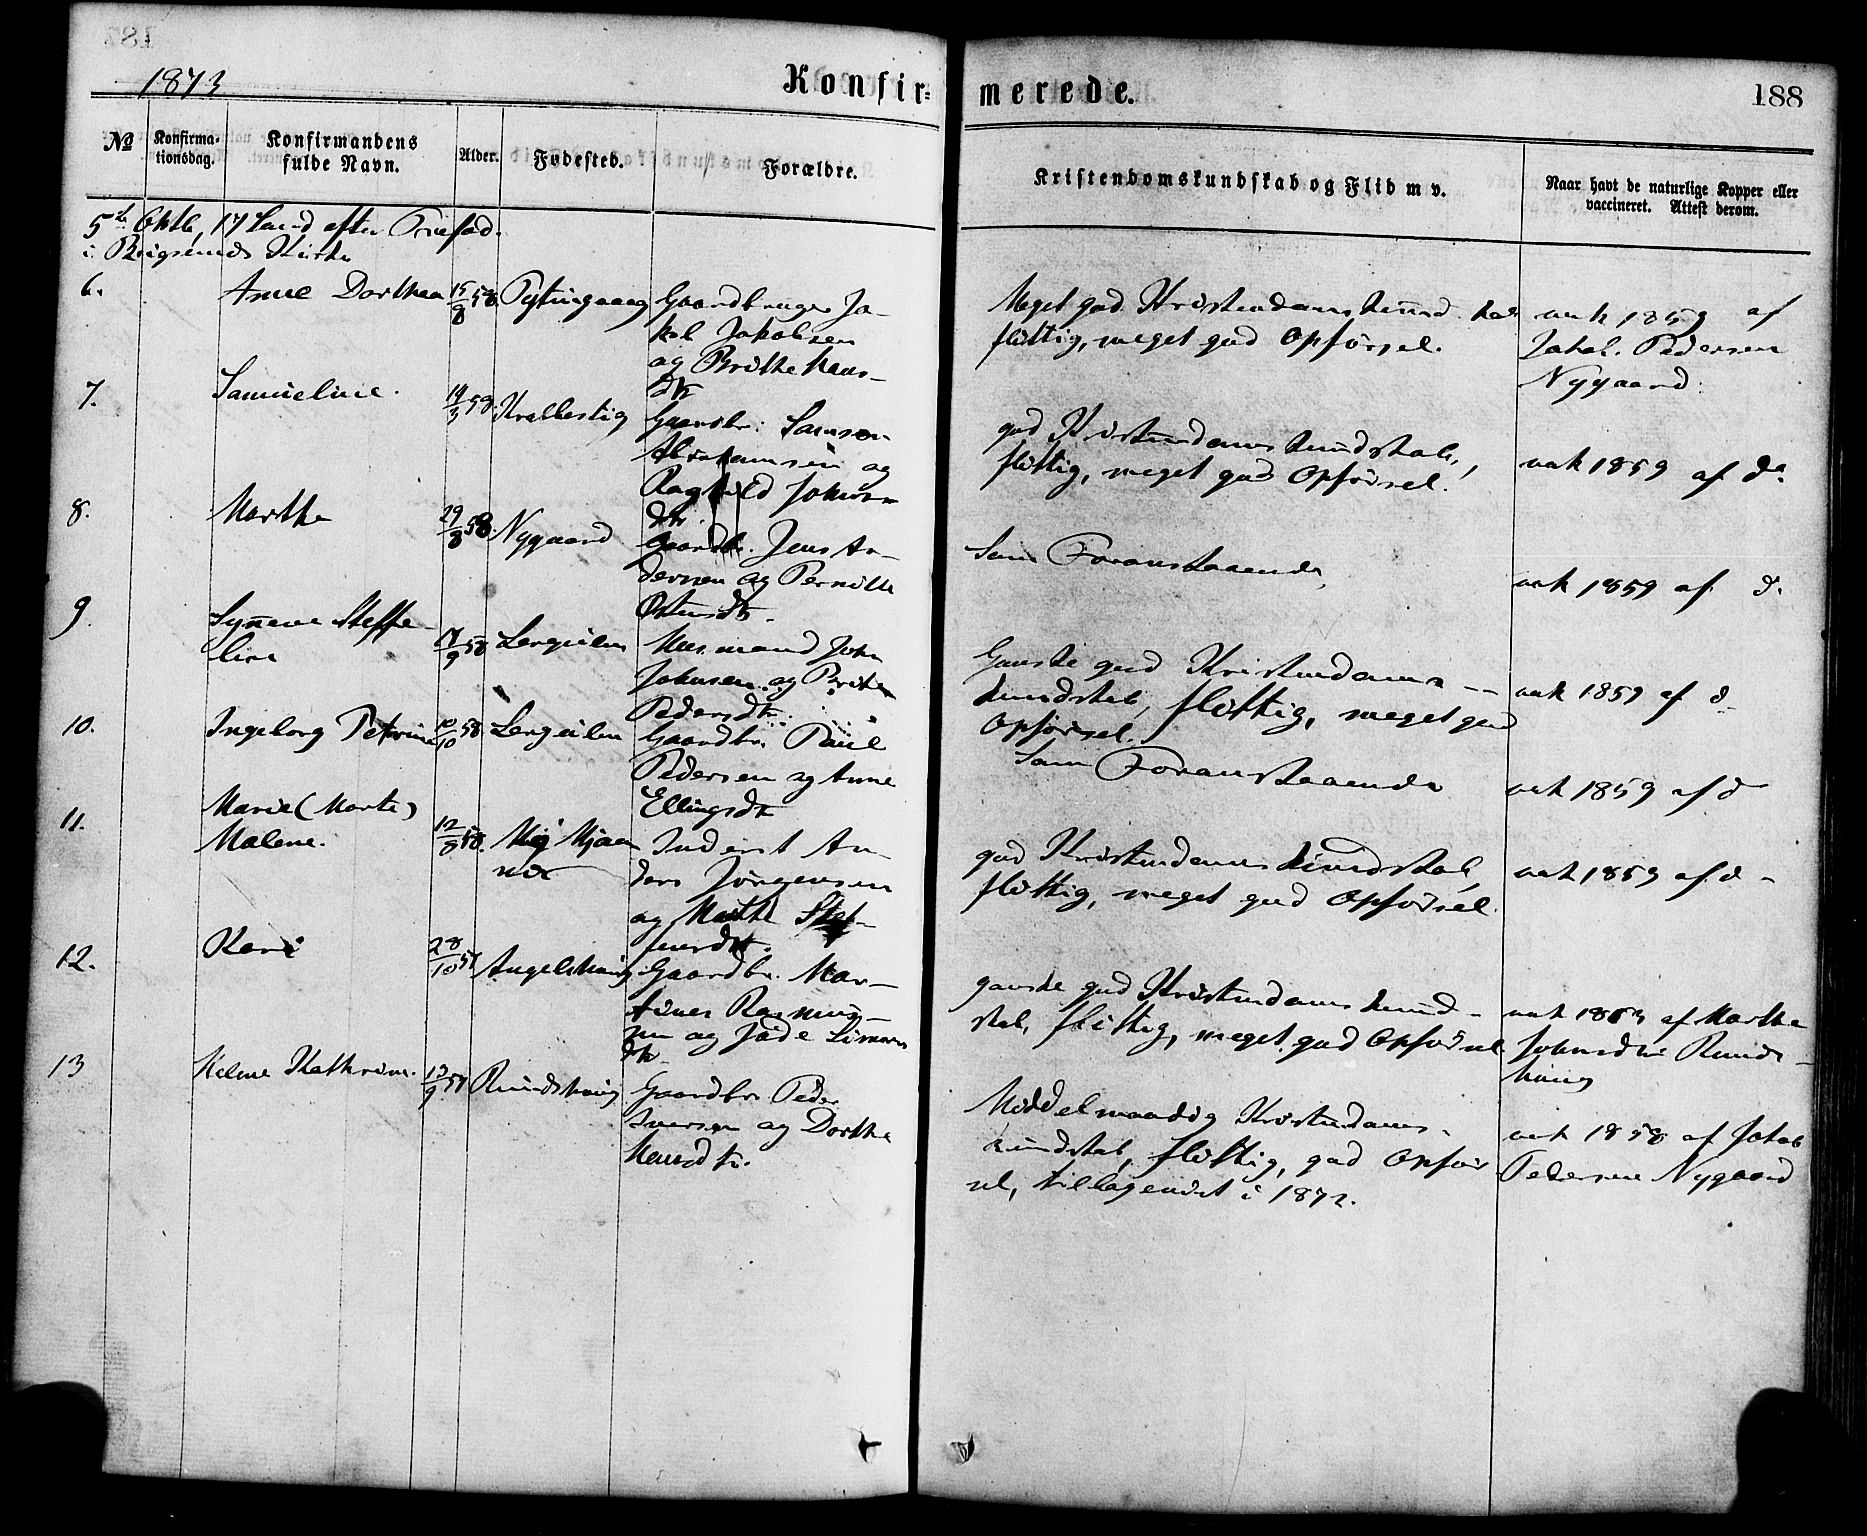 1873
Konfir=
merede.
188
No
Konfirma-
tionsdag.
Konfirmandens
fulde Navn.
Alder.
Fødested.
Forældre.
Kristendomskundskab og Flid m v.
Naar havt de naturlige Kopper eller
vaccineret. Attest derom.
5te Oktb, 17 Sønd after Trefod.
i Kirke
6. Anne Dorthea 15/8 58 Gaardbruger Ja-
kob Jakobsen
og Brithe Hans-
dtr
Meget god Kristendomskundskab
flittig, meget god Opførsel.
vak 1859 af
Jakob Pedersen
Nygaard
7. Samueline. 19/3 58. Gaardbr: Samson
Abrahamsen og
Raghild Johns
dtr
god Kristendomskundskab,
flittig, meget god Opførsel.
vak 1859 af do
8. Marthe 29/8 58. Nygaard Gaardbr. Jens An-
dersen og Pernille
Olsdtr.
Som Foranstaaende,
vak 1859 af d.
9. Synneve Steffe-
line 17/9 58 Husmand John
Johnsen og Brithe
Pedersdtr.
Ganske god Kristendoms-
kundskab, flittig, meget god
Opførsel.
vak 1859 af d
10. Ingeborg Petrine 10/10 58 Gaardbr. Paul
Pedersen og Anne
Ellingsdtr
Som Foranstaaende
vak 1859 af d
11. Marie (Marte)
Malene. 12/8 58. Inderst An-
ders Jørgensen
og Marthe Stef-
fensdtr.
god Kristendomskundskab,
flittig, meget god Opførsel.
vak 1859 af d
12. Kari 28/10 57 Gaardbr. Mar-
tines Rasmus-
sen og Simons
dtr
ganske god Kristendomskund-
skab, flittig, meget god Opførsel
af Marthe
Johnsdtr Runds-
haug
13 Helene Kathrine. 13/9 57 Rundshaug Gaardbr Peder
Iversen og Dorthe
Hansdtr.
Middelmaadig Kristendoms-
kundskab, flittig, god Opfør-
sel, tilbagevist i 1872.
vak 1858 af Jakob
Pedersen Nygaard